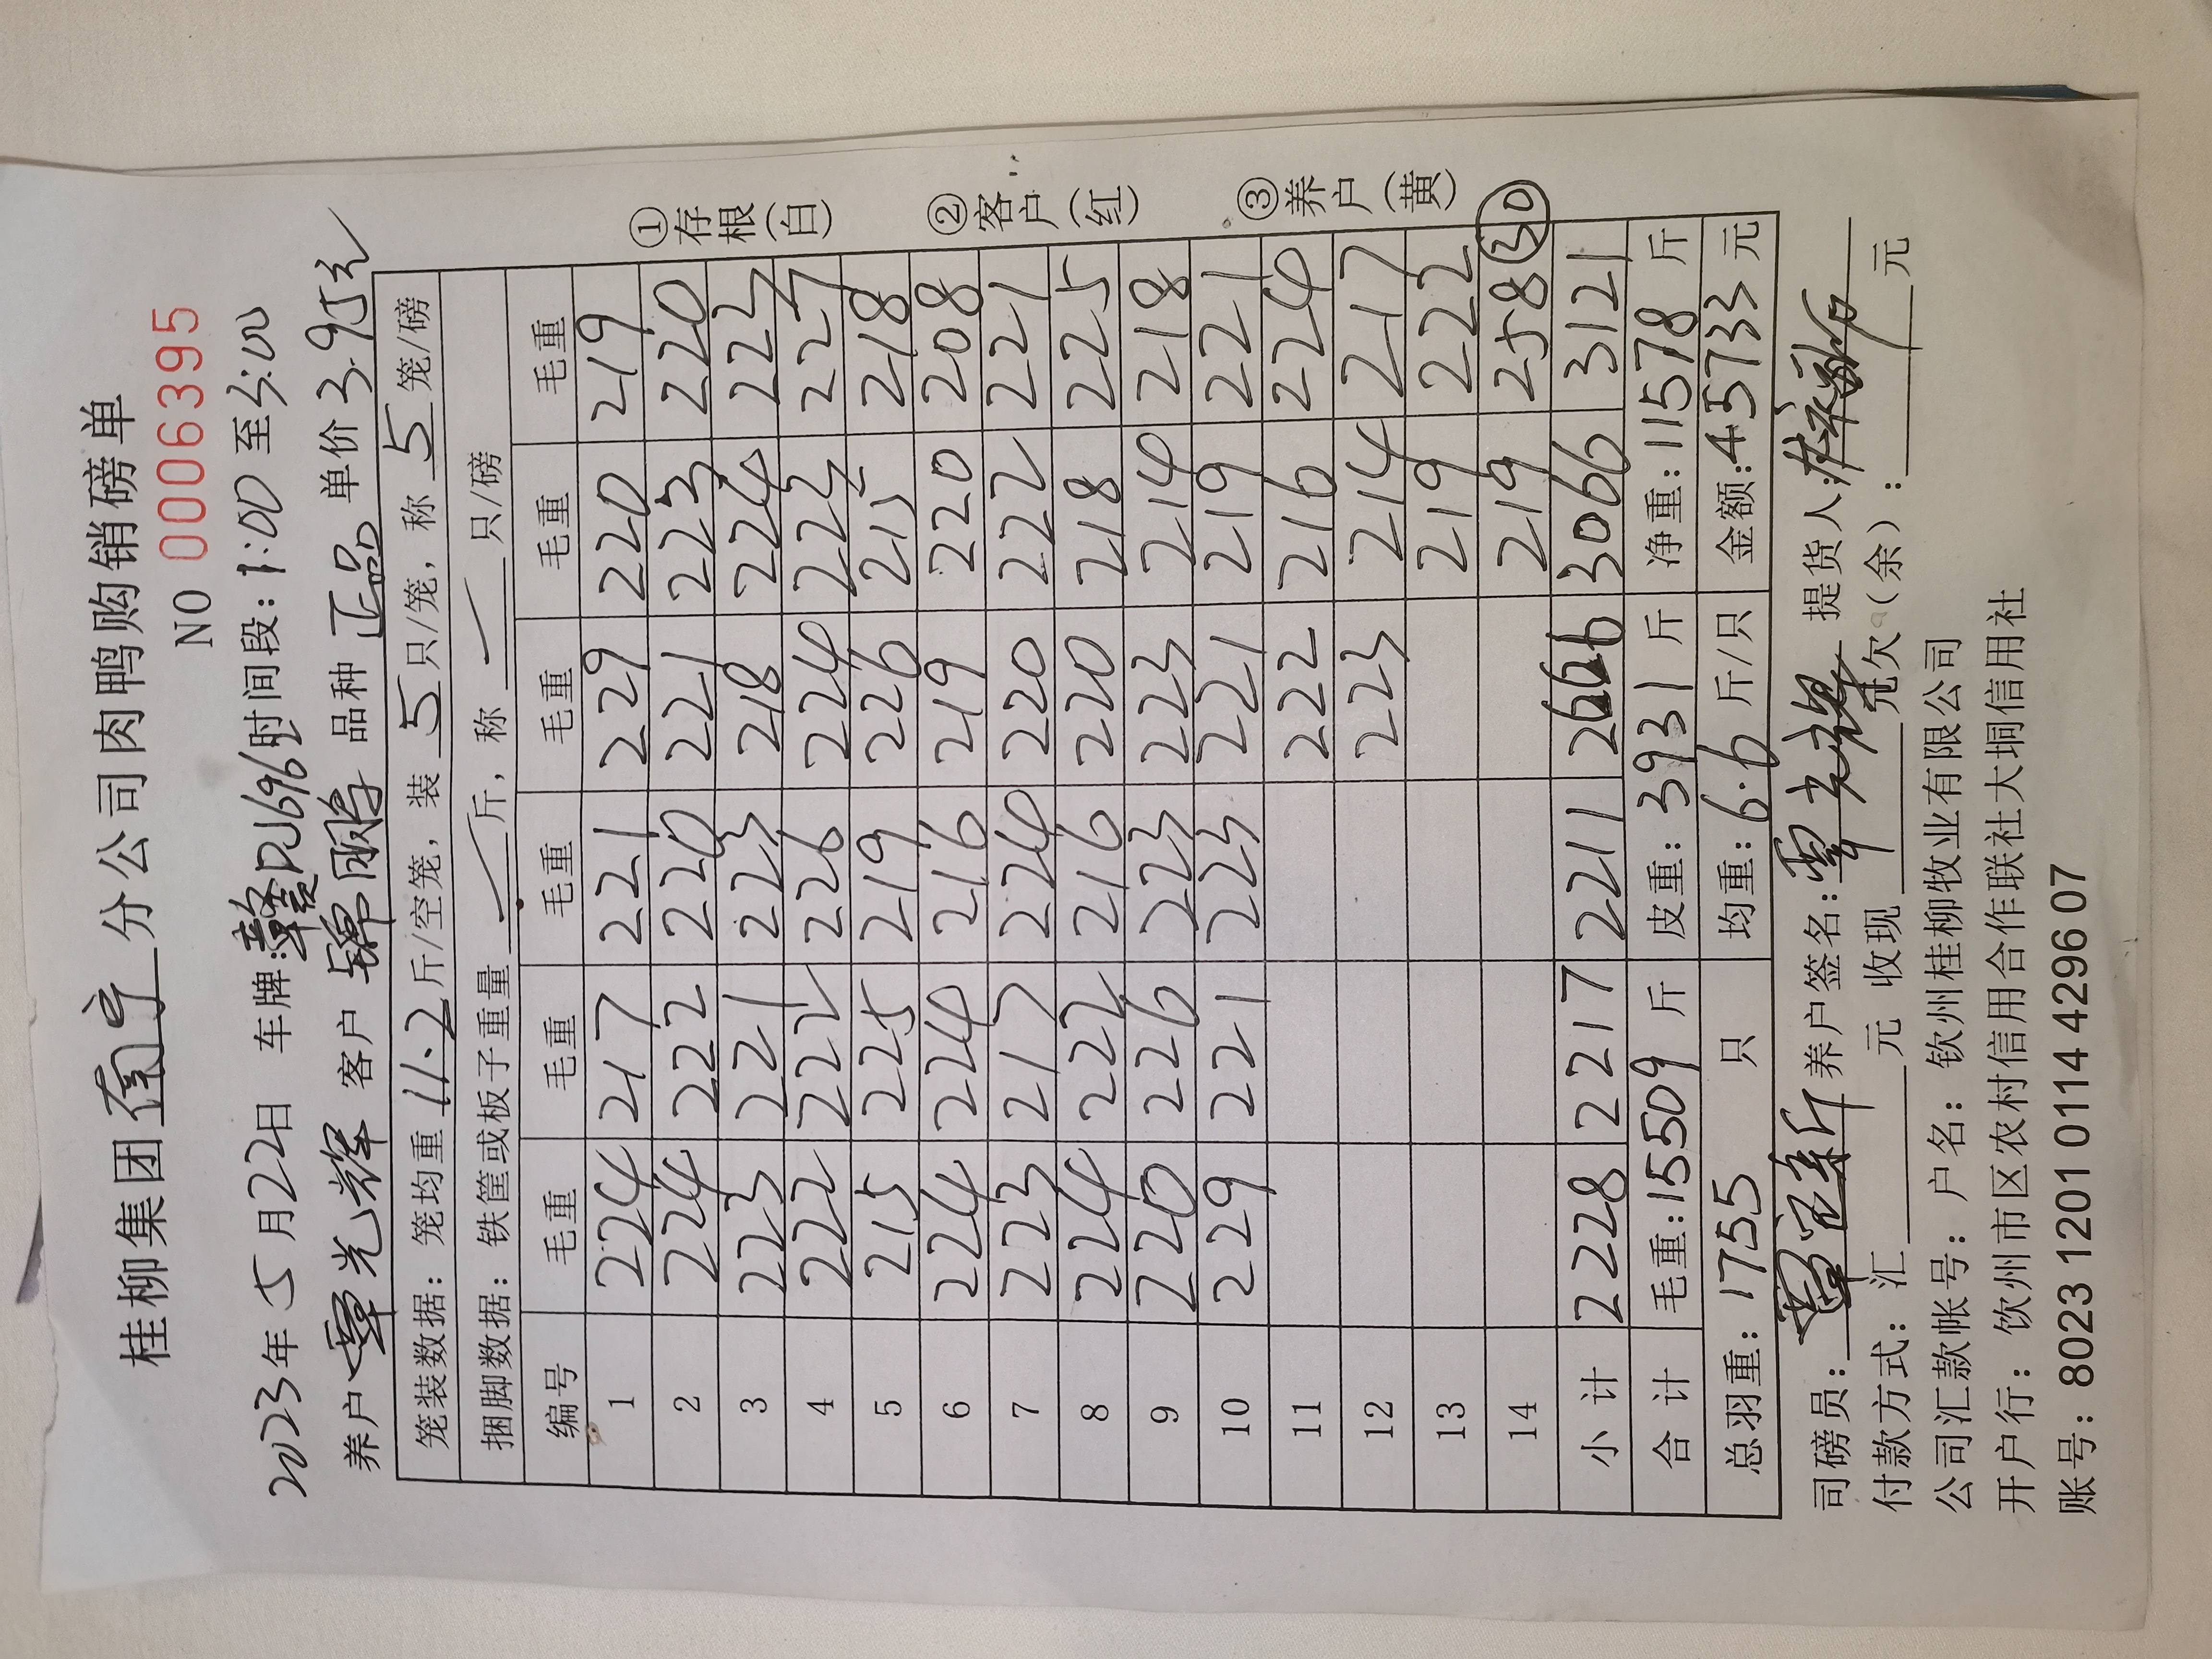 桂柳集团南宁分公司肉鸭购销磅单
NO 0006395
2023年5月22日 车牌:赣DJ696 时间段:1:00至5:00
养户 覃光辉 客户 锦鹏 品种 正品 单价 3.95元
笼装数据: 笼均重 11.2 斤/空笼, 装 5 只/笼, 称 5 笼/磅
捆脚数据: 铁筐或板子重量 斤, 称 只/磅
编号 毛重 毛重 毛重 毛重 毛重 毛重
1 224 217 221 229 220 219
2 224 222 220 221 223 220
3 223 221 223 218 224 223
4 222 222 226 224 222 227
5 215 225 219 226 215 218
6 224 224 216 219 220 208
7 223 217 224 220 222 221
8 224 222 216 220 218 225
9 220 226 223 223 214 218
10 229 221 223 221 219 221
11 222 216 224
12 223 214 217
13 219 222
14 219 258 30
小计 2228 2217 2211 2666 3066 3121
合计 毛重:15509 斤 皮重:3931 斤 净重:11578 斤
总羽重:1755 只 均重:6.6 斤/只 金额:45733 元
司磅员: 养户签名:覃光辉 提货人:
付款方式: 汇 元 收现 元欠(余): 元
公司汇款帐号: 户名: 钦州桂柳牧业有限公司
开户行: 饮州市区农村信用合作联社大垌信用社
账号: 8023 1201 0114 4296 07
①存根(白)
②客户(红)
③养户(黄)